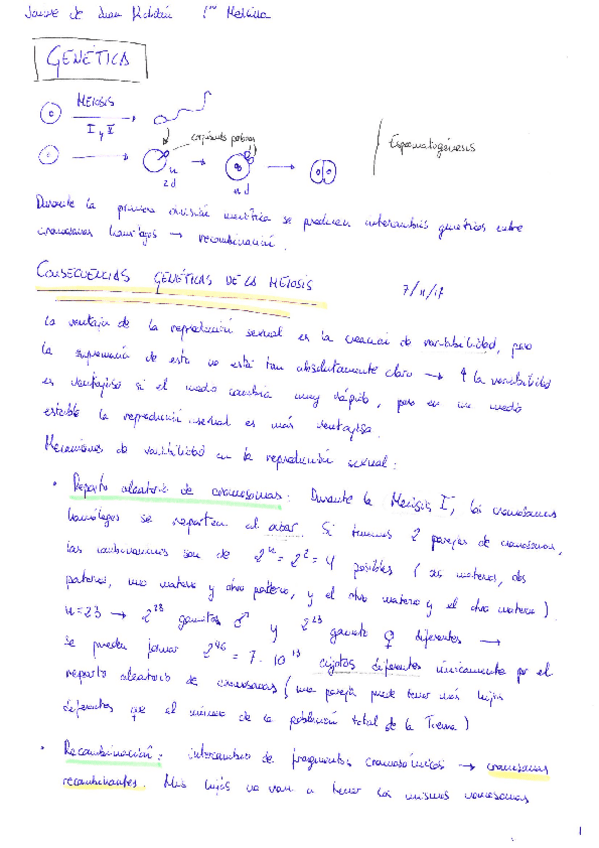 Jaume de Juan 1ero Medicina
GENÉTICA
MEIOSIS
I y II
corpúsculos polares
Espermatogénesis
n
2d
n d
Durante la primera división meiótica se producen intercambios genéticos entre
cromosomas homólogos → recombinación.
CONSECUENCIAS GENÉTICAS DE LA MEIOSIS
7/11/17
La ventaja de la reproducción sexual es la creación de variabilidad, pero
la supremacía de esta no está tan absolutamente claro → ↑ la variabilidad
es ventajosa si el medio cambia muy rápido, pero en un medio
estable la reproducción asexual es más ventajosa.
Mecanismos de variabilidad en la reproducción sexual:
• Reparto aleatorio de cromosomas: Durante la Meiosis I, los cromosomas
homólogos se reparten al azar. Si tenemos 2 parejas de cromosomas,
las combinaciones son de 2ⁿ = 2² = 4 posibles ( dos maternos, dos
paternos, uno materno y otro paterno, y el otro materno y el otro materno ).
n=23 → 2²³ gametos ♂ y 2²³ gametos ♀ diferentes →
se pueden formar 2⁴⁶ = 7 · 10¹³ cigotos diferentes únicamente por el
reparto aleatorio de cromosomas ( una pareja puede tener más hijos
diferentes que el número de la población total de la Tierra )
• Recombinación: intercambio de fragmentos cromosómicos → cromosomas
recombinantes. Mis hijos no van a tener los mismos cromosomas
1